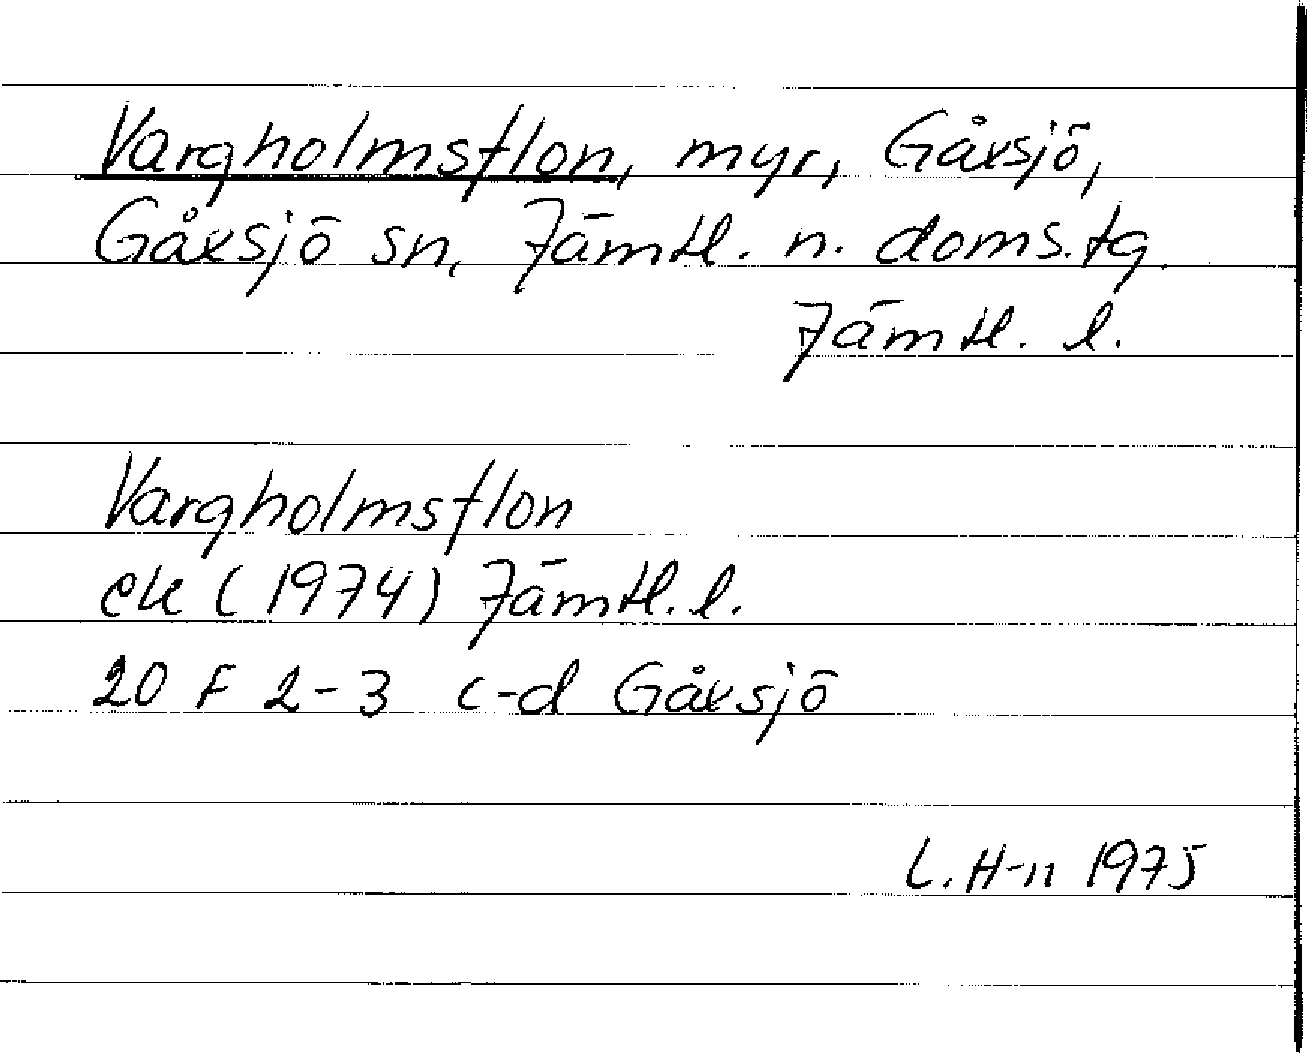 Vargholmsflon, myr, Gåxsjö,
Gåxsjö sn, Jämtl. n. doms.tg.
Jämtl. l.
Vargholmsflon
ek (1974) Jämtl. l.
20 F 2-3 c-d Gåxsjö
L. H-n 1975